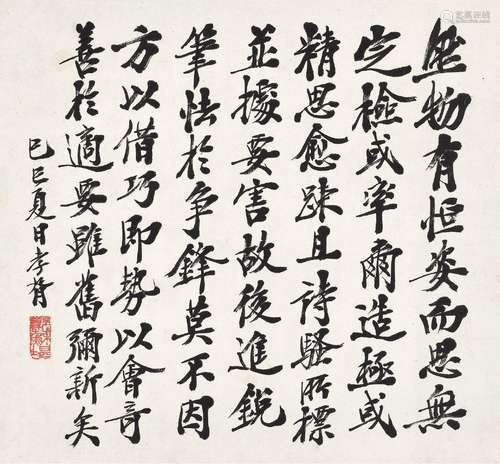 然物有恒姿而思無
定檢或率爾造極或
精思愈疎且詩騷所標
並據要害故後進銳
筆怯於争鋒莫不因
方以借巧即勢以會奇
善於適要雖舊彌新矣
己巳夏日孝胥